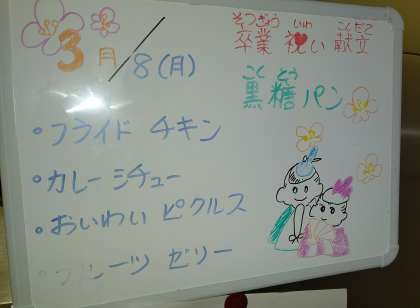 3月/8(月)
そつぎょう いわ こんだて
卒業 祝い 献立
こくとう
黒糖パン
・フライド チキン
・カレーシチュー
・おいわい ピクルス
フルーツ ゼリー